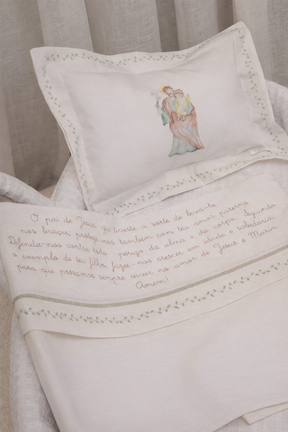 O pai de Jesus, Tu tiveste a sorte de levá-lo
nos braços, protege-nos também com teu amor paterno.
Defenda-nos contra todo perigo da alma e do corpo. Segundo
o exemplo de teu filho, faça-nos crescer em
para que possamos sempre viver no amor de Jesus e Maria.
Amém!